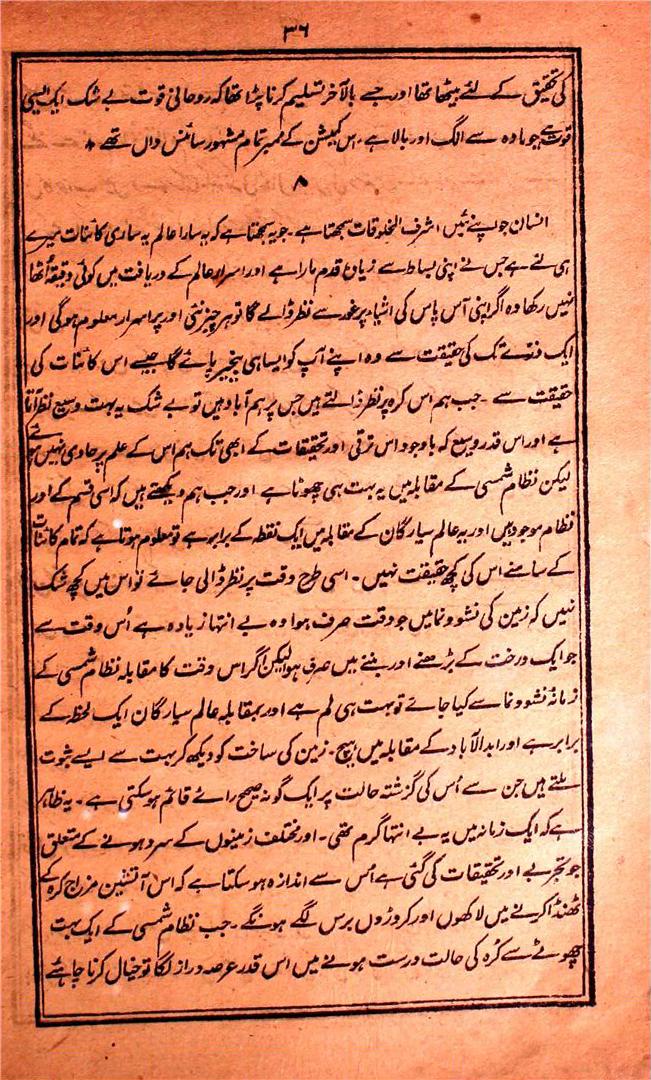 ۳۶
کی تحقیق کے لئے بیٹھا تھا اور جسے بالآخر تسلیم کرنا پڑا تھا کہ روحانی قوت بے شک ایک ایسی
قوت ہے جو مادہ سے الگ اور بالا ہے۔ اس کمیشن کے ممبر تمام مشہور سائنس داں تھے ٭
۸
انسان جو اپنے تئیں اشرف المخلوقات سمجھتا ہے۔ جو یہ سمجھتا ہے کہ یہ سارا عالم یہ ساری کائنات میرے
ہی لئے ہے جس نے اپنی بساط سے زیادہ قدم مارا ہے اور اسرار عالم کے دریافت میں کوئی دقیقہ اُٹھا
نہیں رکھا وہ اگر اپنی آس پاس کی اشیاء پر غور سے نظر ڈالے گا تو ہر چیز نئی اور پر اسرار معلوم ہوگی اور
ایک ذرّے تک کی حقیقت سے وہ اپنے آپ کو ایسا ہی بیخبر پائے گا جیسے اس کائنات کی
حقیقت سے۔ جب ہم اس کرہ پر نظر ڈالتے ہیں جس پر ہم آباد ہیں تو بے شک یہ بہت وسیع نظر آتا
ہے اور اس قدر وسیع کہ باوجود اس ترقی اور تحقیقات کے ابھی تک ہم اس کے علم پر حاوی نہیں ہوئے
لیکن نظام شمسی کے مقابلہ میں یہ بہت ہی چھوٹا ہے اور جب ہم دیکھتے ہیں کہ اسی قسم کے اور
نظام موجود ہیں اور یہ عالم سیارگان کے مقابلہ میں ایک نقطہ کے برابر ہے تو معلوم ہوتا ہے کہ تمام کائنات
کے سامنے اس کی کچھ حقیقت نہیں۔ اسی طرح وقت پر نظر ڈالی جائے تو اس میں کچھ شک
نہیں کہ زمین کی نشوونما میں جو وقت صرف ہوا وہ بے انتہا زیادہ ہے اُس وقت سے
جو ایک درخت کے بڑھنے اور بننے میں صرف ہو لیکن اگر اس وقت کا مقابلہ نظام شمسی کے
زمانۂ نشوونما سے کیا جائے تو بہت ہی کم ہے اور بمقابلہ عالم سیارگان ایک لحظہ کے
برابر ہے اور ابدالآباد کے مقابلہ میں ہیچ۔ زمین کی ساخت کو دیکھ کر بہت سے ایسے ثبوت
ملتے ہیں جن سے اُس کی گزشتہ حالت پر ایک گونہ صحیح رائے قائم ہو سکتی ہے۔ یہ ظاہر
ہے کہ ایک زمانہ میں یہ بے انتہا گرم تھی۔ اور مختلف زمینوں کے سرد ہونے کے متعلق
جو تجربے اور تحقیقات کی گئی ہے اُس سے اندازہ ہو سکتا ہے کہ اس آتشین مزاج کرہ کے
ٹھنڈا کرنے میں لاکھوں اور کروڑوں برس لگے ہونگے۔ جب نظام شمسی کے ایک بہت
چھوٹے سے کُرہ کی حالت درست ہونے میں اس قدر عرصہ دراز لگا تو خیال کرنا چاہئے